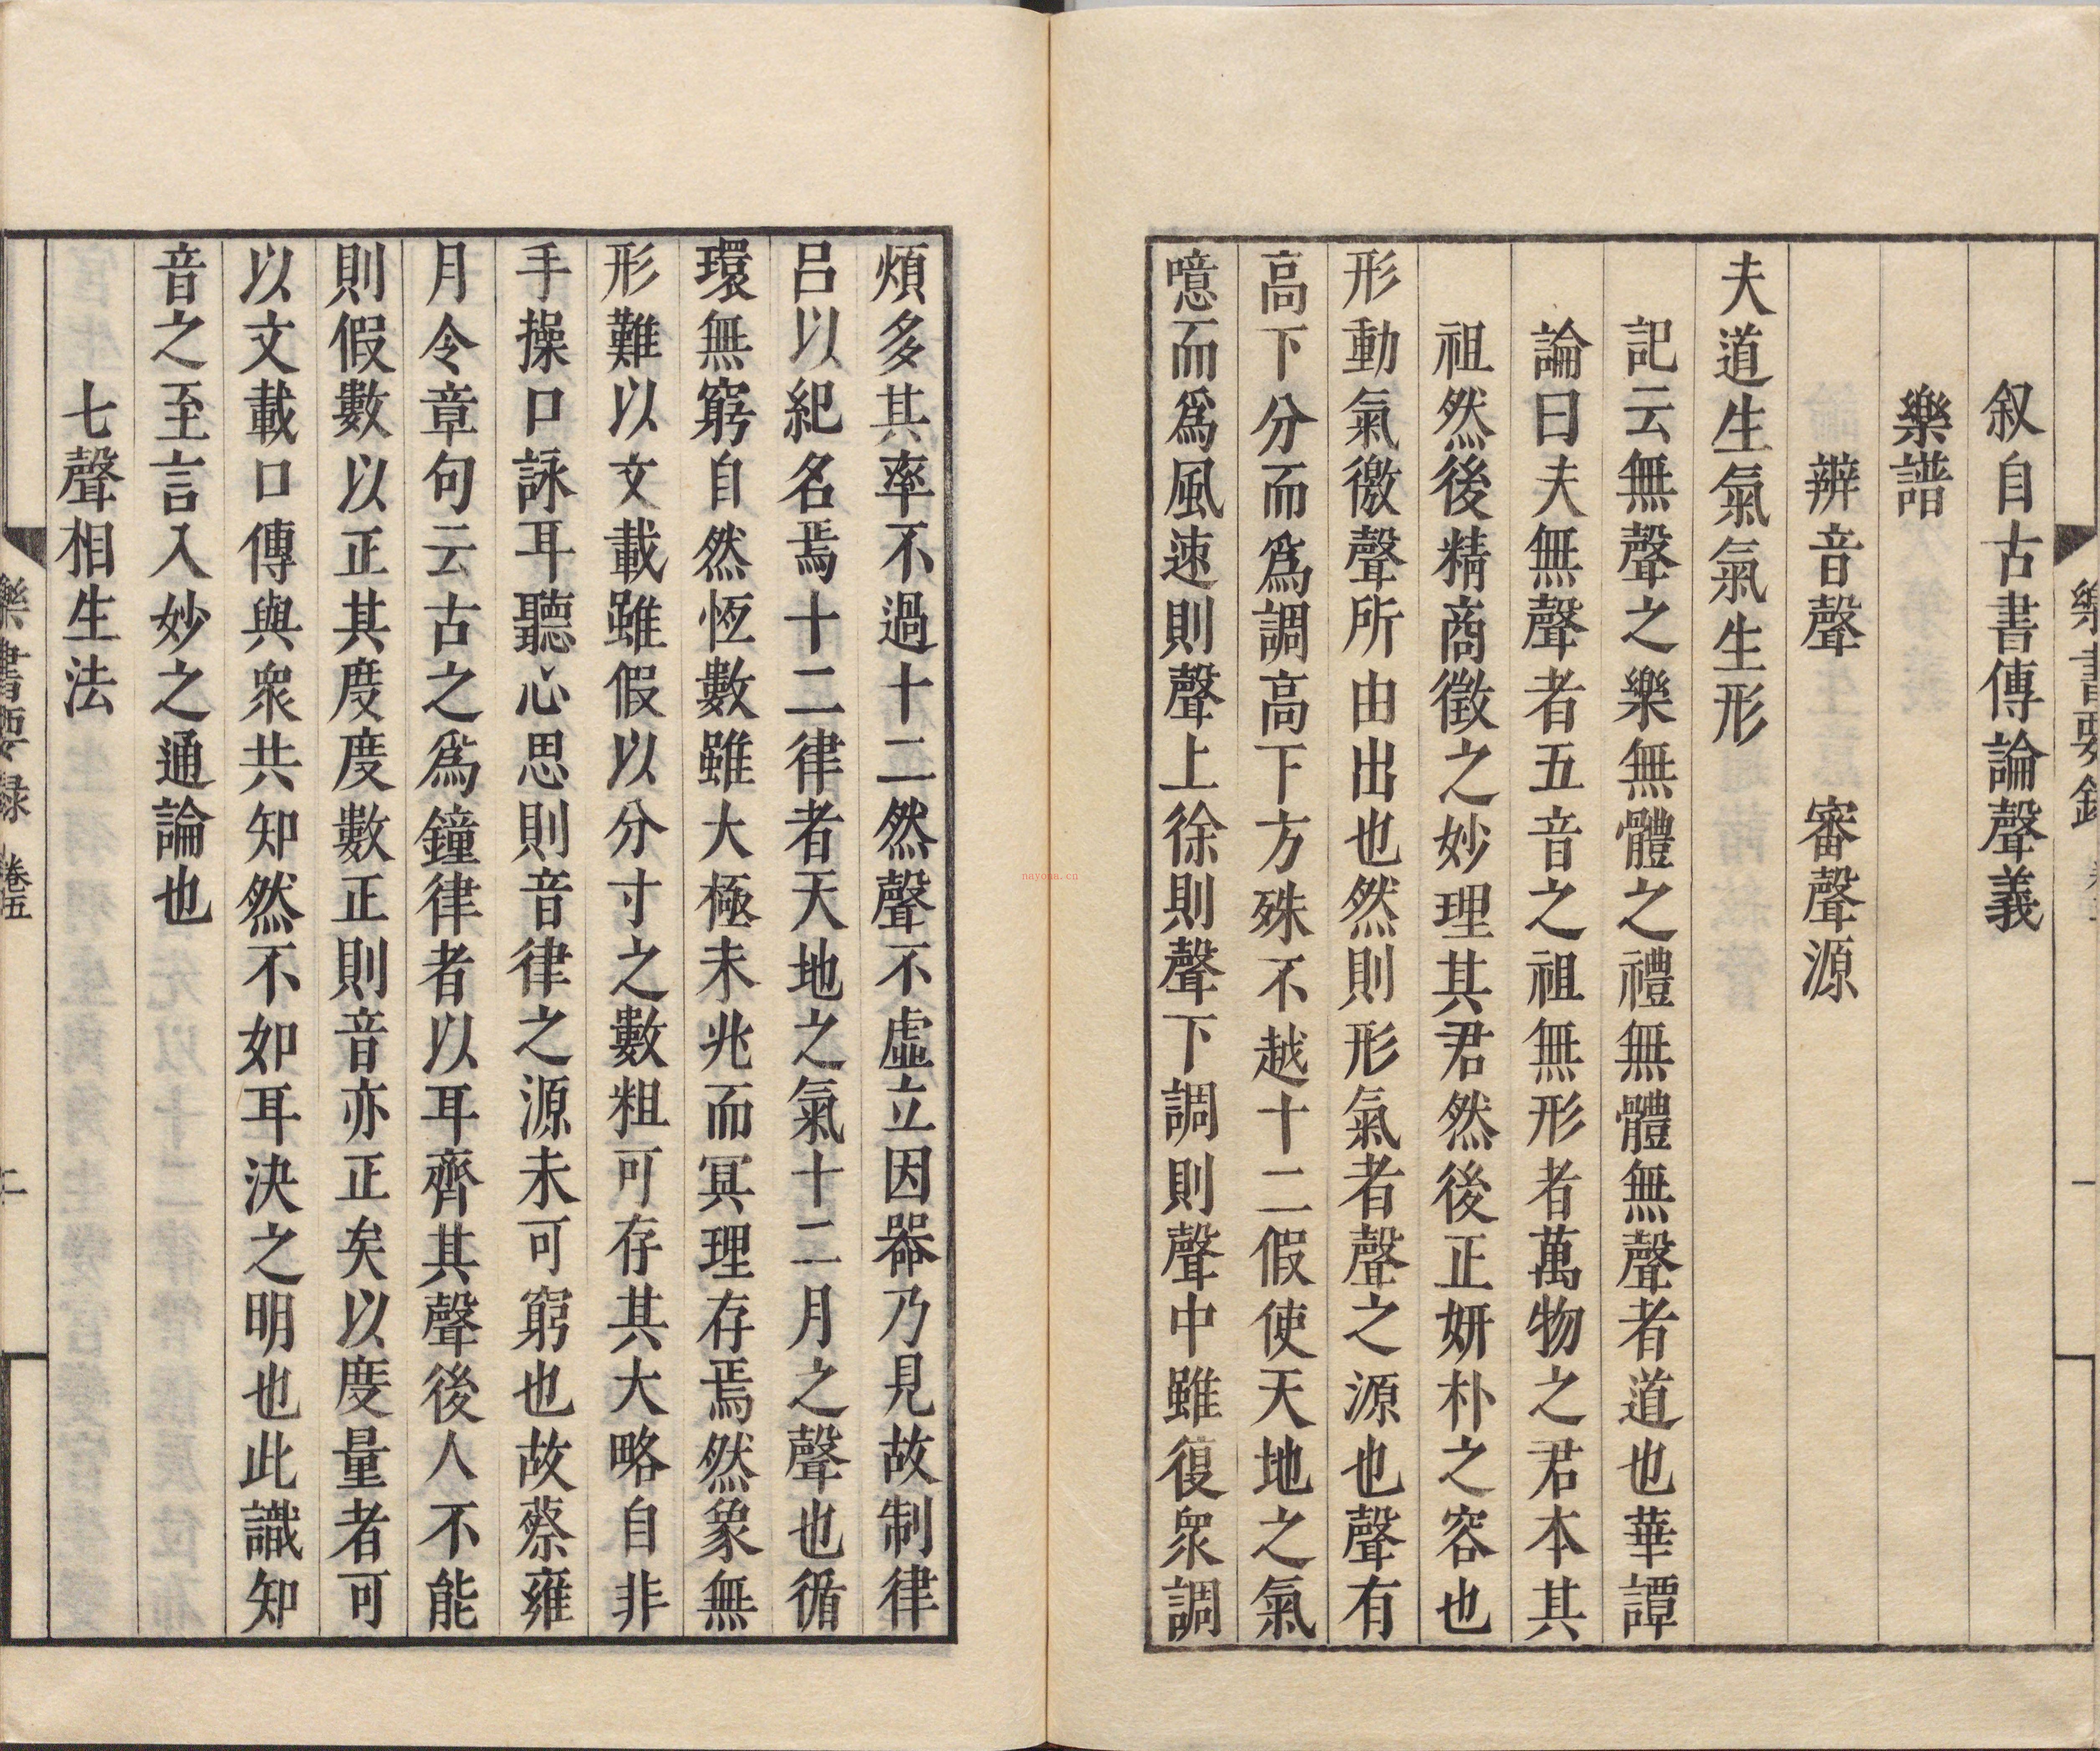 叙自古書傳論聲義
樂譜
辨音聲　審聲源
夫道生氣氣生形
記云無聲之樂無體之禮無體無聲者道也華譚
論曰夫無聲者五音之祖無形者萬物之君本其
祖然後精商徵之妙理其君然後正妍朴之容也
形動氣徼聲所由出也然則形氣者聲之源也聲有
高下分而爲調高高下方殊不越十二假使天地之氣
噫而爲風速則聲上徐則聲下調則聲中雖復衆調
煩多其率不過十二然聲不虛立因器乃見故制律
呂以紀名焉十二律者天地之氣十二月之聲也循
環無窮自然恆數雖大極未兆而冥理存焉然象無
形難以文載雖假以分寸之數粗可存其大略自非
手操口詠耳聽心思則音律之源未可窮也故蔡雍
月令章句云古之爲鐘律者以耳齊其聲後人不能
則假數以正其度度數正則音亦正矣以度量者可
以文載口傳與衆共知然不如耳決之明也此識知
音之至言入妙之通論也
七聲相生法
樂書要録
卷五
二
一
nayona.cn